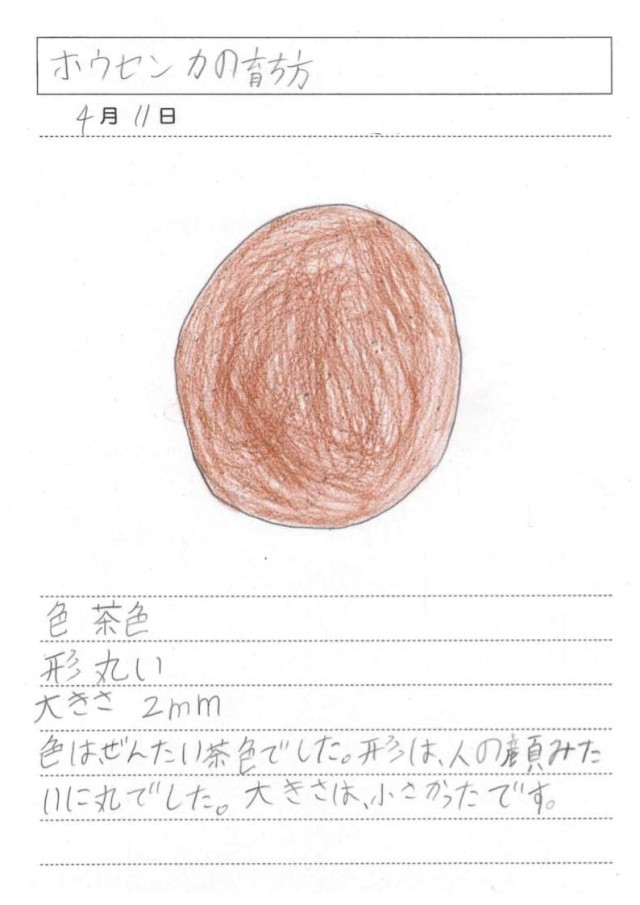 ホウセンカの育ち方
4月11日
色 茶色
形 丸い
大きさ 2mm
色は、ぜんたい茶色でした。形は、人の顔みた
いに丸でした。大きさは、小さかったです。